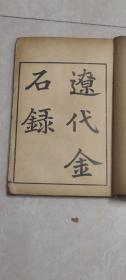 遼代金
石録